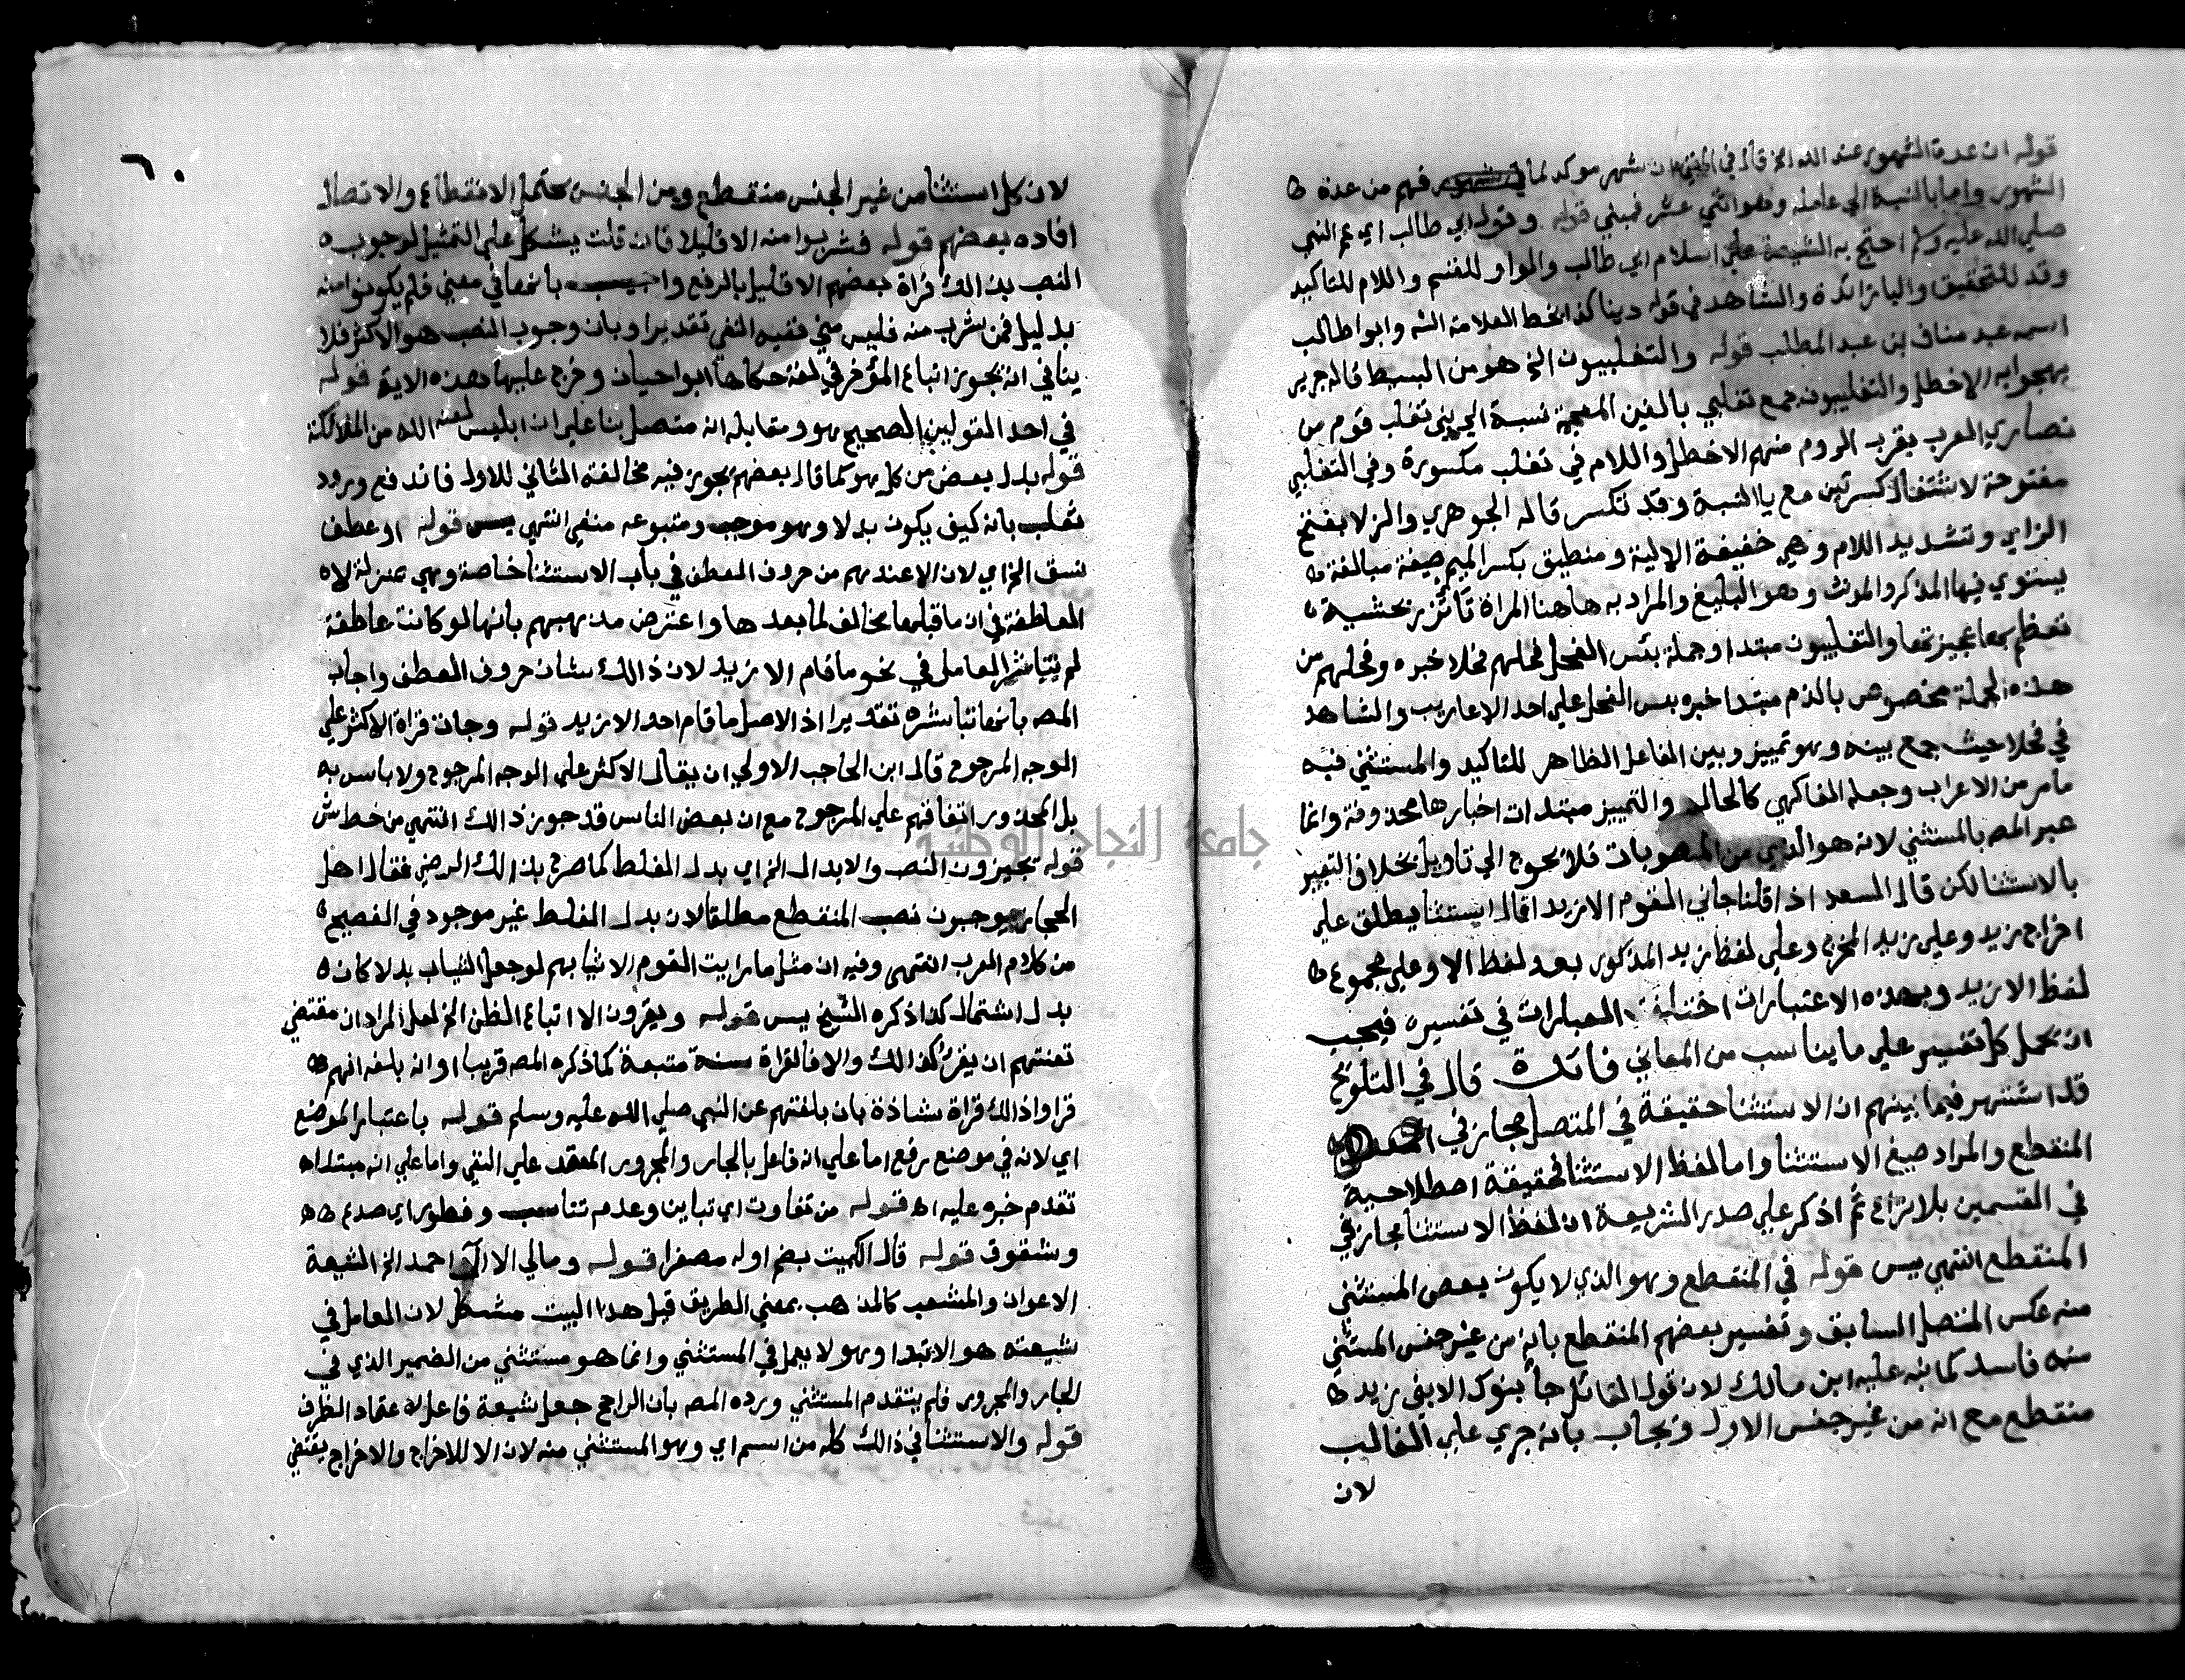 قوله ان عدة الشهور عند الله الخ قال في المغني ان شهر موكد لما فهم من عدة
الشهور واما بالنسبة الي عامله وهو اثني عشر فمبني قوله وقول ابي طالب اي عم النبي
صلي الله عليه وسلم احتج به الشيعة علي اسلام ابي طالب والواو للقسم واللام للتاكيد
وقد للتحقيق والبا زائدة والشاهد في قوله دينا كذا بخط العلامة الش وابوا طالب
اسمه عبد مناف بن عبد المطلب قوله والتغلبيون الخ هو من البسيط قاله جرير
يهجوا به الاخطل والتغلبيون جمع تغلبي بالغين المعجمة نسبة الي بني تغلب قوم من
نصاري العرب بقرب الروم منهم الاخطل واللام في تغلب مكسورة وفي التغلبي
مفتوحة لاستثقال كسرتين مع يا النسبة وقد تكسر قاله الجوهري والزلا بفتح
الزاي وتشديد اللام وهي خفيفة الالية ومنطيق بكسر الميم صيغة مبالغة
يستوي فيها المذكر والمونث وهو البليغ والمراد به هاهنا المراة تأتزر بحشية
تعظم بها عجيزتها والتغلبيون مبتدا وجملة بئس الفحل فحلهم فحلا خبره وفحلهم من
هذه الجملة مخصوص بالذم مبتدا خبره بيس الفحل علي احد الاعاريب والشاهد
في فحلا حيث جمع بينه وهو تمييز وبين الفاعل الظاهر للتاكيد والمستثني فيه
مامر من الاعراب وجعله الفاكهي كالحال والتمييز مبتدات اخبارها محذوفة وانما
عبر المص بالمستثني لانه هو الذي من المنصوبات فلا يحوج الي تاويل بخلاف التعبير
بالاستثنا لكن قال السعد اذا قلنا جاني القوم الا زيدا فالاستثنا يطلق علي
اخراج زيد وعلي زيد المخرج وعلي لفظ زيد المذكور بعد لفظ الا وعلي مجموع
لفظ الا زيد وبهذه الاعتبارات اختلفت العبارات في تفسيره فيجب
ان يحمل كل تفسير علي ما يناسب من المعاني فائدة قال في التلويح
قد اشتهر فيما بينهم ان الاستثنا حقيقة في المتصل مجاز في
المنقطع والمراد صيغ الاستثنا واما لفظ الاستثنا فحقيقة اصطلاحية
في القسمين بلا نزاع ثم اذكر علي صدر الشريعة ان لفظ الاستثنا مجاز في
المنقطع انتهي يس قوله في المنقطع وهو الذي لا يكون بعض المستثني
منه عكس المتصل السابق وتفسير بعضهم المنقطع بانه من غير جنس المستثني
منه فاسد كما نبه عليه ابن مالك لان قول القائل جا بنوك الا بني زيد
منقطع مع انه من غير جنس الاول ويجاب بانه جري علي الغالب
لان
٦٠
لان كل استثنا من غير الجنس منقطع ومن الجنس يحتمل الانقطاع والاتصال
افاده بعضهم قوله فشربوا منه الا قليلا فان قلت يشكل علي التمثيل لوجوب
النصب بذالك قراة بعضهم الا قليل بالرفع واجيب بانها في معني فلم يكونوا منه
بدليل فمن شرب منه فليس مني ففيه النفي تقديرا وبان وجوب النصب هو الاكثر فلا
ينافي انه يجوز اتباع المؤخر في لغة حكاها ابوا حيان وخرج عليها هذه الاية قوله
في احد القولين الصحيح هو ومقابله انه متصل بنا علي ان ابليس لعنه الله من الملائكة
قوله بدل بعض من كل هو كما قال بعضهم يجوز فيه مخالفة الثاني للاول فاندفع ورود
ثعلب بانه كيف يكون بدلا وهو موجب ومتبوعه منفي انتهي يس قوله او عطف
نسق الخ اي لان الا عندهم من حروف العطف في باب الاستثنا خاصة وهي منزلة لا
العاطفة في ان ما قبلها مخالف لما بعدها واعترض مذهبهم بانها لو كانت عاطفة
لم تباشر العامل في نحو ما قام الا زيد لان ذالك شان حروف العطف واجاب
المص بانها تباشره تقديرا اذ الاصل ما قام احد الا زيد قوله وجات قراة الاكثر علي
الوجه المرجوح قال ابن الحاجب الاولي ان يقال الاكثر علي الوجه المرجوح ولا باس به
بل المحذور اتفاقهم علي المرجوح مع ان بعض الناس قد جوز ذالك انتهي من خط ش
قوله تجيزون النصب والابدال الخ اي بدل الغلط كما صرح بذالك الرضي فقال اهل
الحجاز يوجبون نصب المنقطع مطلقا لان بدل الغلط غير موجود في الفصيح
من كلام العرب انتهي وفيه ان مثل ما رايت القوم الا ثيابهم لو جعل الثياب بدلا كان
بدل اشتمال كذا ذكره الشيخ يس قوله ويقرون الا اتباع الظن الخ لعل المراد ان مقتضي
تعنتهم ان يقرئ كذالك والا فالقراة سنة متبعة كما ذكره المص قريبا او انه بلغه انهم
قراوا ذالك قراة شاذة بان بلغتهم عن النبي صلي الله عليه وسلم قوله باعتبار الموضع
اي لانه في موضع رفع اما علي انه فاعل بالجار والمجرور المعتمد علي النفي واما علي انه مبتدا
تقدم خبره عليه اه قوله من تفاوت اي تباين وعدم تناسب وفطور اي صدع
وشقوق قوله قال الكميت بضم اوله مصغرا قوله ومالي الا ال احمد الخ الشيعة
الاعوان والمشعب كالمذهب بمعني الطريق قيل هذا البيت مشكل لان العامل في
شيعته هو الابتدا وهو لا يعمل في المستثني وانما هو مستثني من الضمير الذي في
الجار والمجرور فلم يتقدم المستثني ورده المص بان الراجح جعل شيعة فاعلا لاعتماد الظرف
قوله والاستثنا في ذالك كله من اسم اي وهو المستثني منه لان الا للاخراج والاخراج يقتضي